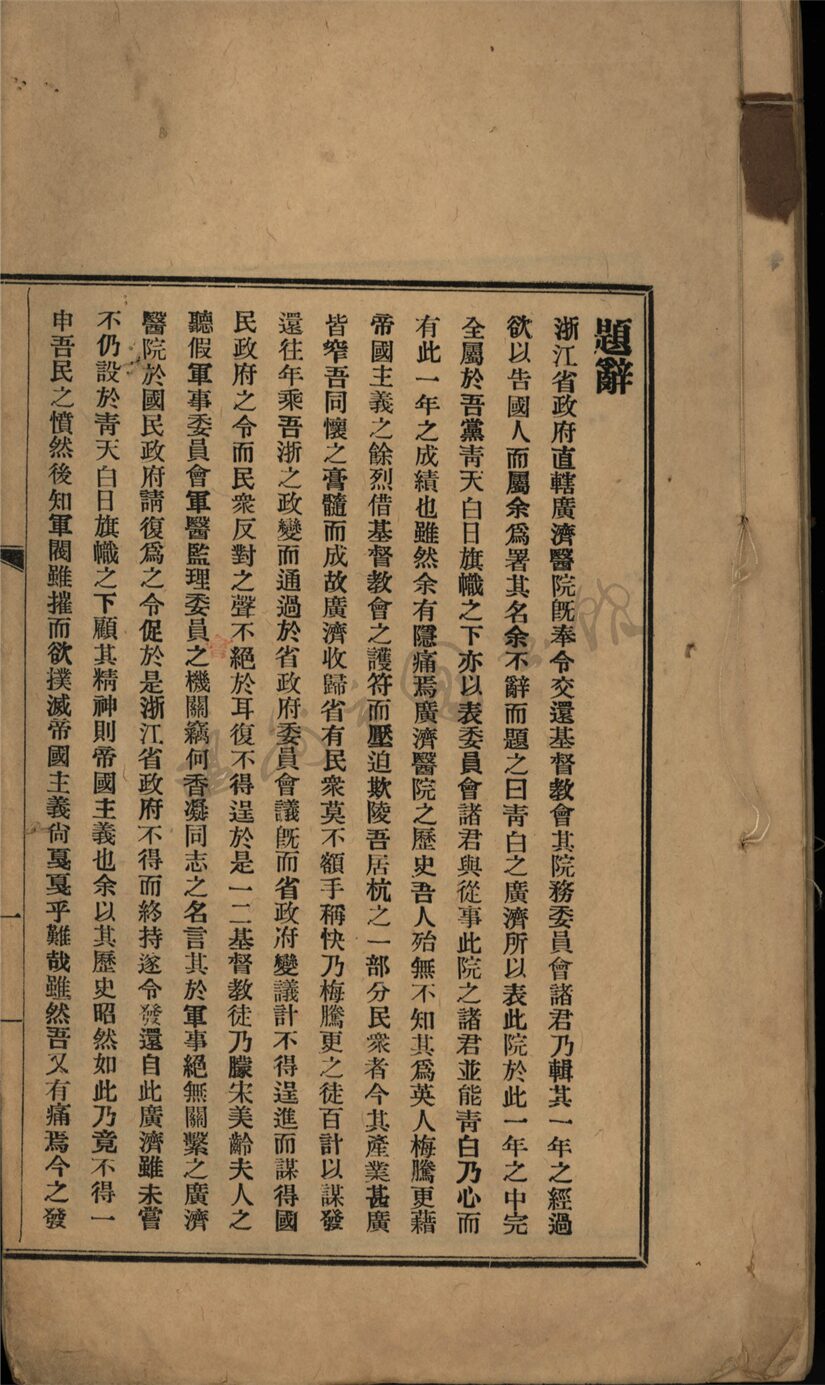 題辭
浙江省政府直轄廣濟醫院旣奉令交還基督教會其院務委員會諸君乃輯其一年之經過
欲以告國人而屬余爲署其名余不辭而題之曰靑白之廣濟所以表此院於此一年之中完
全屬於吾黨靑天白日旗幟之下亦以表委員會諸君與從事此院之諸君並能靑白乃心而
有此一年之成績也雖然余有隱痛焉廣濟醫院之歷史吾人殆無不知其爲英人梅騰更藉
帝國主義之餘烈借基督教會之護符而壓迫欺陵吾居杭之一部分民衆者今其產業甚廣
皆窄吾同懷之膏髓而成故廣濟收歸省有民衆莫不額手稱快乃梅騰更之徒百計以謀發
還往年乘吾浙之政變而通過於省政府委員會議旣而省政府變議計不得逞進而謀得國
民政府之令而民衆反對之聲不絕於耳復不得逞於是一二基督教徒乃朦宋美齡夫人之
聽假軍事委員會軍醫監理委員之機關竊何香凝同志之名言其於軍事絕無關繫之廣濟
醫院於國民政府請復爲之令促於是浙江省政府不得而終持遂令發還自此廣濟雖未嘗
不仍設於靑天白日旗幟之下顧其精神則帝國主義也余以其歷史昭然如此乃竟不得一
申吾民之憤然後知軍閥雖摧而欲撲滅帝國主義尙戛戛乎難哉雖然吾又有痛焉今之發
一